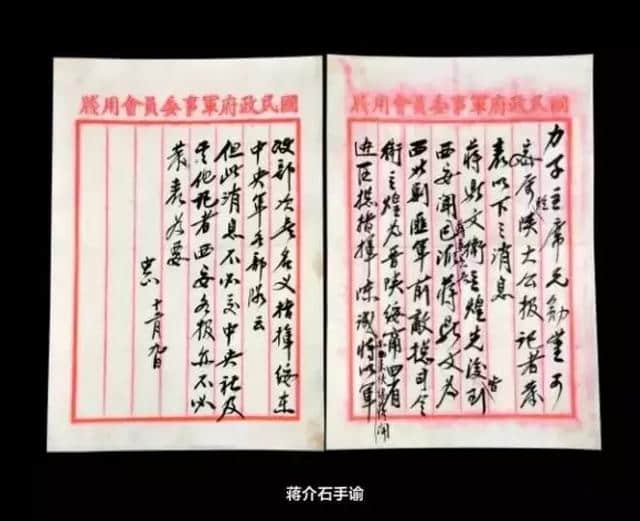 國民政府軍事委員會用牋
力子主席兄勛鑒可
密囑駐陝大公報記者發
表以下之消息
蔣鼎文衛立煌先後皆到
西安聞蔣委員長已派蔣鼎文為
西北剿匪軍前敵總司令
衛立煌為晉陝綏甯四省
邊區總指揮陳誠亦來謁蔣聞將以軍
國民政府軍事委員會用牋
政部次長名義指揮綏東
中央軍各部隊云
但此消息不必交中央社及
其他記者西安各報亦不必
發表為要
中正 十二月九日
蒋介石手谕